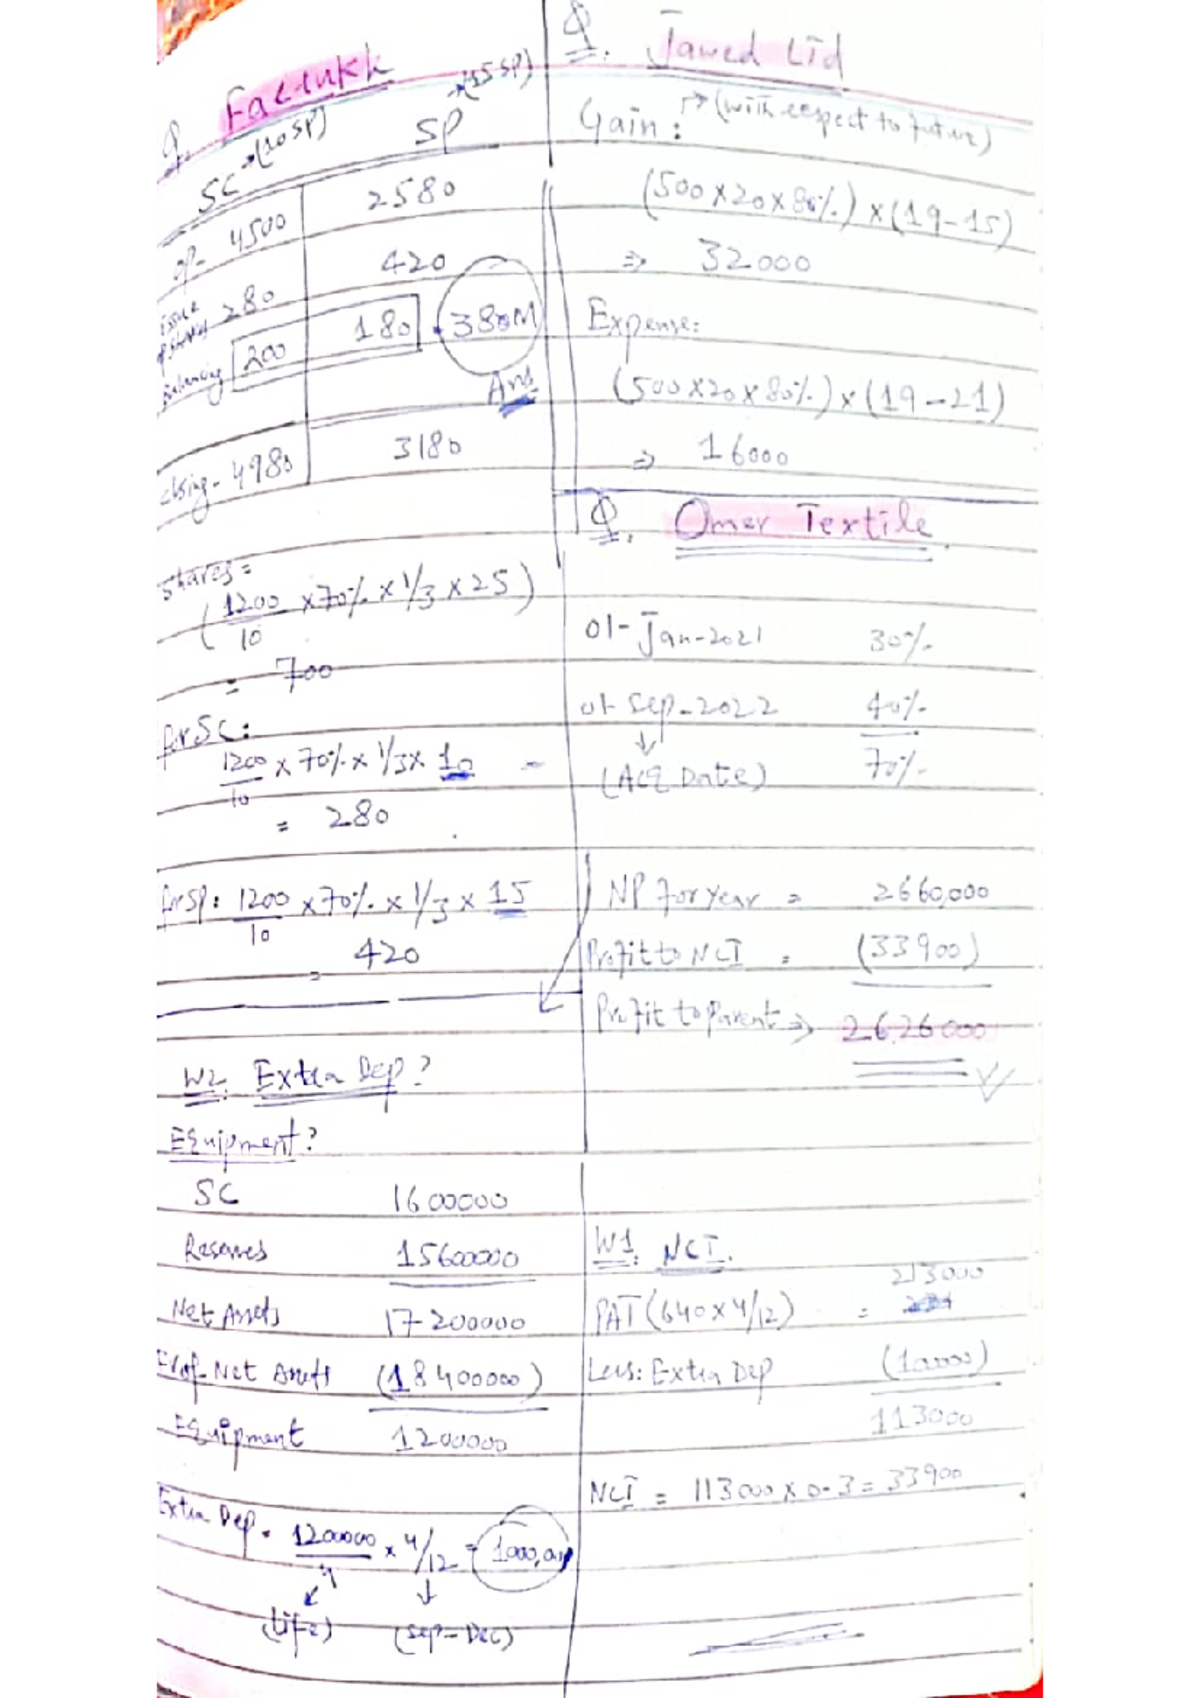 Q. Farrukh
SC →(10 SP) SP →(15 SP)
OP- 4500 2580
Issue of shares 280 420
Balancing 200 180 . 380M
Ans
closing- 4980 3180
Shares =
(1200/10 × 70% × 1/3 × 25)
= 700
for SC:
1200/10 × 70% × 1/3 × 10 -
= 280
for SP: 1200/10 × 70% × 1/3 × 15
= 420
W2. Extra Dep?
Equipment?
SC 1600000
Reserves 15600000
Net Assets 17200000
Net Assets (18400000)
Equipment 1200000
Extra Dep. 1200000 × 4/12 = 1000,00
(Life) (Sep-Dec)
Q. Jawed Ltd
Gain: → (with respect to future)
(500×20×80%) × (19-15)
⇒ 32000
Expense:
(500×20×80%) × (19-21)
⇒ 16000
Q. Omer Textile
01-Jan-2021 30%
01-Sep-2022 40%
(Acq Date) 70%
NP for year = 2660,000
Profit to NCI = (33900)
Profit to Parent ⇒ 2626000
W1. NCI.
213000
PAT (640×4/12) =
Less: Extra Dep (100000)
113000
NCI = 113000 × 0.3 = 33900